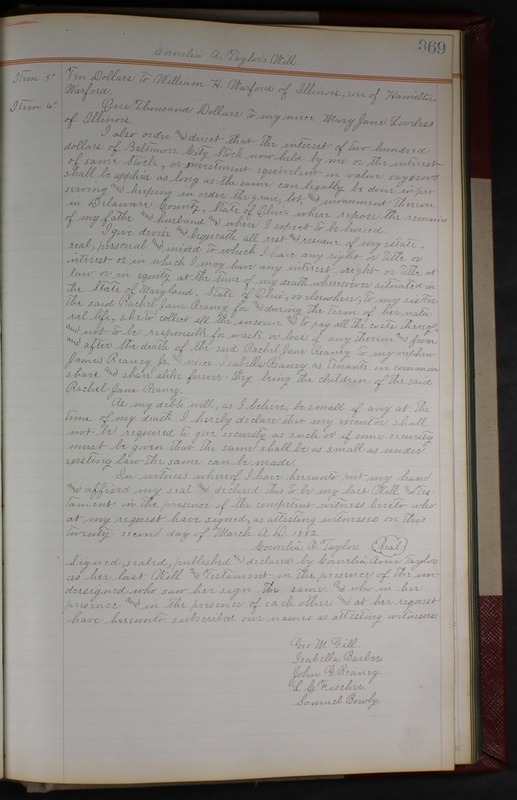 369
Cornelia A. Taylor's Will
Item 5th Ten Dollars to William H. Warford of Illinois, son of Hamilton
Warford.
Item 6th One Thousand Dollars to my niece Mary Jane Lovless
of Illinois
I also order and direct that the interest of two hundred
dollars of Baltimore City Stock now held by me or the interest
of same Stock, or investment equivalent in value
shall be applied as long as the same can legally be done in pre-
serving and keeping in order the grave, lot, and monument thereon
in Delaware County, State of Ohio where repose the remains
of my father and husband and where I expect to be buried.
I give devise and bequeath all rest and residue of my estate,
real, personal and mixed to which I have any right or title or
interest or in which I may have any interest, right or title at
law or in equity at the time of my death wheresoever situated in
the State of Maryland, State of Ohio, or elsewhere, to my sister
the said Rachel Jane Reaney for and during the term of her natu-
ral life, she to collect all the income and to pay all the costs thereof,
and not to be responsible for waste or loss if any thereon and from
and after the death of the said Rachel Jane Reaney to my nephew
James Reaney Jr. and niece Isabella Reaney as tenants in common
share and share alike forever they being the children of the said
Rachel Jane Reaney.
As my debts will, as I believe, be small if any at the
time of my death I hereby declare that my executor shall
not be required to give security as such or if some security
must be given that the same shall be as small as under
existing law the same can be made
In witness whereof I have hereunto put my hand
and affixed my seal and declared this to be my last Will and Tes
tament in the presence of the competent witness hereto who
at my request have signed, as attesting witnesses on this
twenty second day of March A.D. 1882
Cornelia A Taylor (Seal)
Signed, sealed, published and declared by Cornelia Ann Taylor
as her last Will and Testament in the presence of the un-
dersigned who saw her sign the same and who in her
presence and in the presence of each other and at her request
have hereunto subscribed our names as attesting witnesses.
Geo M. Gill.
Isabella Barber
John G. Reaney.
L. C. Fischer
Samuel Bowly